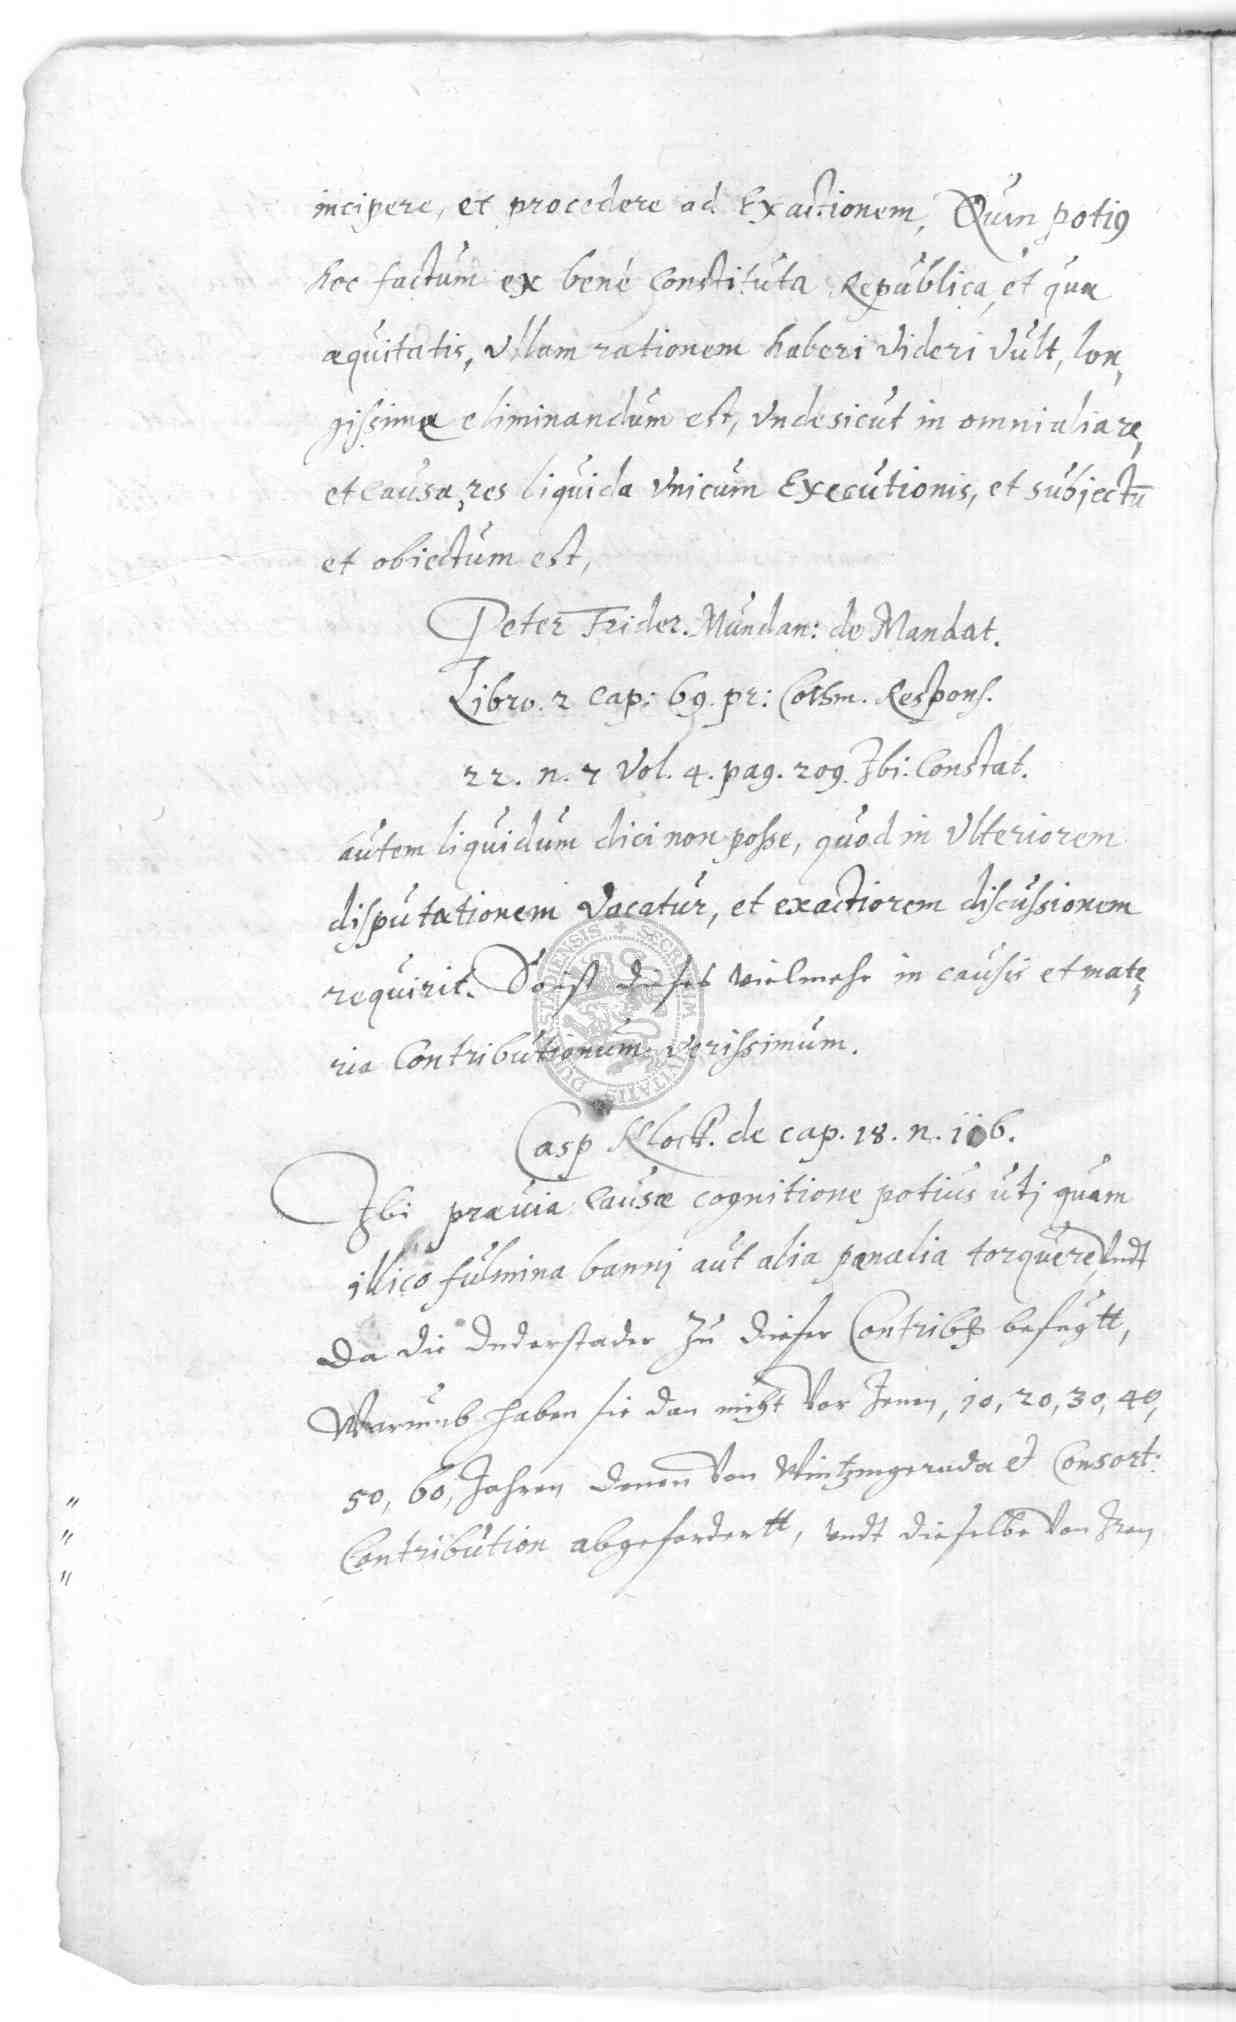 incipere, et procedere ad Exactionem, Quin potig
hoc factum ex bené Constituta Republica, et quæ
æquitatis, Vllam rationem haberi videri Vult, lon,
gissime eliminandum est, Vnde sicut in omni alia re,
et Causa, res liquida Vnicum Executionis, et subjectū
et obiectum est,
Peter Frider. Mundan: de Mandat.
Libro. 2 Cap: 69. pr: Cothm. Respons.
22. n. 7 Vol. 4. pag. 209. Ibi: Constat.
autem liquidum dici non posse, quod in Vlteriorem
disputationem Vocatur, et exactiorem discussionem
requirit. So ist dieses vielmehr in causis et mate,
ria Contributionum Verissimum.
Casp Klock. de cap. 18. n. 116.
Ibi præuia Causæ cognitione potius utj quam
illico fulmina bannj aut alia pænalia torquere, Vndt
Da die Duderstader Zu dieser Contrib. befugtt,
Warumb haben sie dan nicht Vor Jenen, 10, 20, 30, 40,
50, 60, Jahren denen Von Wintzingeroda et Consort:
Contribution abgefordertt, vndt dieselbe Von Iren
SECRETUM CIVITATIS DUDERSTADIENSIS